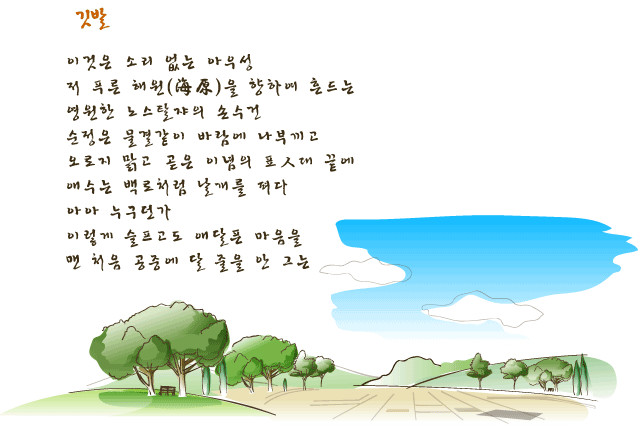 깃발
이것은 소리 없는 아우성
저 푸른 해원(海原)을 향하여 흔드는
영원한 노스탈쟈의 손수건
순정은 물결같이 바람에 나부끼고
오로지 맑고 곧은 이념의 표ㅅ대 끝에
애수는 백로처럼 날개를 펴다
아아 누구던가
이렇게 슬프고도 애달픈 마음을
맨 처음 공중에 달 줄을 안 그는